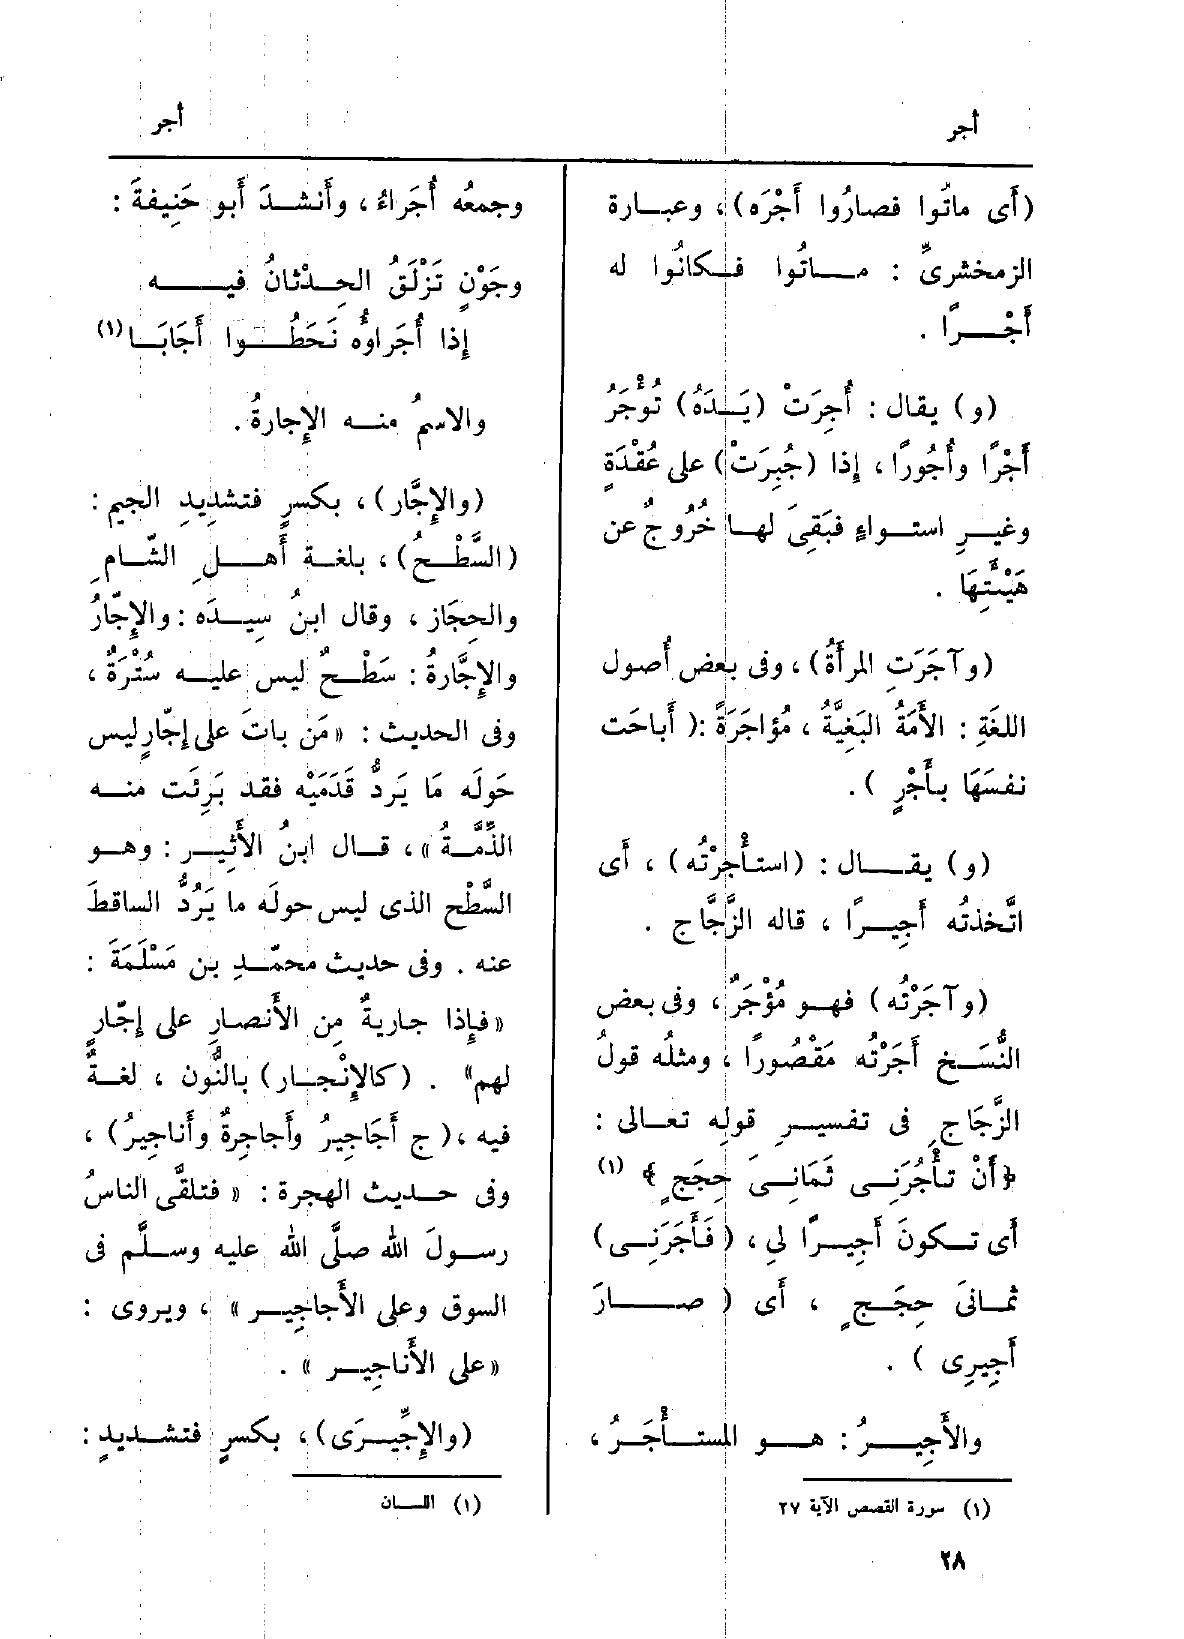 أجر
أجر
(أَى ماتُوا فصارُوا أَجْرَه)، وعبارة
الزمخشرىِّ : ماتُوا فكانُوا له
أَجْرًا .
(و) يقال : أُجِرَتْ (يَدَهُ) تُؤْجَرُ
أَجْرًا وأُجُورًا، إذا (جُبِرَتْ) على عُقْدَةٍ
وغيرِ استواءٍ فبَقِىَ لها خُرُوجٌ عن
هَيْئَتِهَا .
(وآجَرَتِ المرأَةُ)، وفى بعض أُصول
اللغَةِ : الأَمَةُ البَغِيَّةُ ، مُؤاجَرَةً :( أَباحَت
نفسَهَا بأَجْرٍ ).
(و) يقال : (استأْجرْتُه) ، أَى
اتَّخذتُه أَجِيرًا ، قاله الزَّجَّاج .
(وآجَرْتُه) فهو مُؤْجَرٌ، وفى بعض
النُّسَخِ أَجَرْتُه مَقْصُورًا ، ومثلُه قولُ
الزَّجَّاجِ فى تفسيرِ قولِه تعالى :
﴿أَنْ تأْجُرَنِى ثَمَانِىَ حِجَجٍ﴾ (١)
أَى تكونَ أَجِيرًا لىِ ، ( فَأَجَرَنِى)
ثمانىَ حِجَجٍ ، أَى ( صارَ
أَجِيرِى ) .
والأَجِيرُ : هو المستأْجَرُ ،
(١) سورة القصص الآية ٢٧
وجمعُه أُجَراءُ ، وأَنشدَ أَبو حَنِيفةَ :
وجَوْنٍ تَزْلَقُ الحِدْثانُ فيه
إذا أُجَراوُه نَحَطُوا أَجَابَا (١)
والاسمُ منه الإِجارةُ .
(والإِجَّار)، بكسرٍ فتشدِيدِ الجيم :
(السَّطْحُ)، بلغة أَهلِ الشّامِ
والحِجَاز ، وقال ابنُ سِيدَه : والإِجّارُ
والإِجَّارةُ : سَطْحٌ ليس عليه سُتْرَةٌ ،
وفى الحديث : «مَن باتَ على إِجّارٍ ليس
حَولَه مَا يَردُّ قَدَمَيْه فقد بَرِئَت منه
الذِّمَّةُ »، قال ابنُ الأَثِير : وهو
السَّطْح الذى ليس حولَه ما يَرُدُّ الساقطَ
عنه . وفى حديث محمّدِ بن مَسْلَمَةَ :
«فإِذا جاريةٌ مِن الأَنصارِ على إِجّارٍ
لهم» . (كالإِنْجار) بالنُّون ، لغةٌ
فيه ،( ج أَجَاجِيرُ وأَجاجِرةٌ وأَناجِيرُ) ،
وفى حديث الهجرة : « فتلقَّى الناسُ
رسولَ الله صلَّى الله عليه وسلَّم فى
السوق وعلى الأَجاجِير » ، ويروى :
«على الأَناجِير » .
(والإِجِّيرَى)، بكسرٍ فتشديدٍ :
(١) اللسان
٢٨